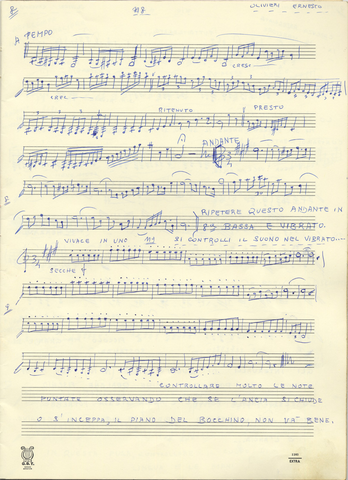 Nº 8 OLIVIERI ERNESCO
A TEMPO
CRESC.
CRES.
RITENUTO PRESTO
ANDANTE
RIPETERE QUESTO ANDANTE IN
8ª BASSA E VIBRATO.
VIVACE IN UNO Nº 9 SI CONTROLLI IL SUONO NEL VIBRATO....
CONTROLLARE MOLTO LE NOTE
PUNTATE OSSERVANDO CHE SE L'ANCIA SI CHIUDE
O S'INCEPPA, IL PIANO DEL BOCCHINO, NON VA' BENE.
EXTRA